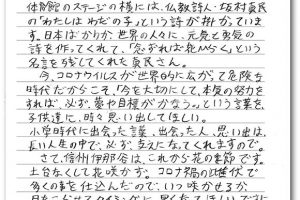 体育館のステージの横には、仏教詩人・坂村真民
の「わたしはわだの子」という詩が掛かっていま
す。日本ばかりか世界の人々に、元気と勇気の
詩を作ってくれて、「念ずれば花ひらく」という
名言を残してくれた真民さん。
今、コロナウイルスが世界中に広がって危険な
時代だからこそ「今を大切にして、本気の努力を
すれば、必ず夢や目標がかなう。」という言葉を
子供達に、時々思い出してほしい。
小学時代に出会った言葉、出会った人、思い出は、
長い人生の中で、必ず支えになってくれますので。
さて、信州伊那谷は、これから花の季節です。
土台なくして花咲かず。コロナ禍の
多くの事を仕込んだので、いつ咲かせるか